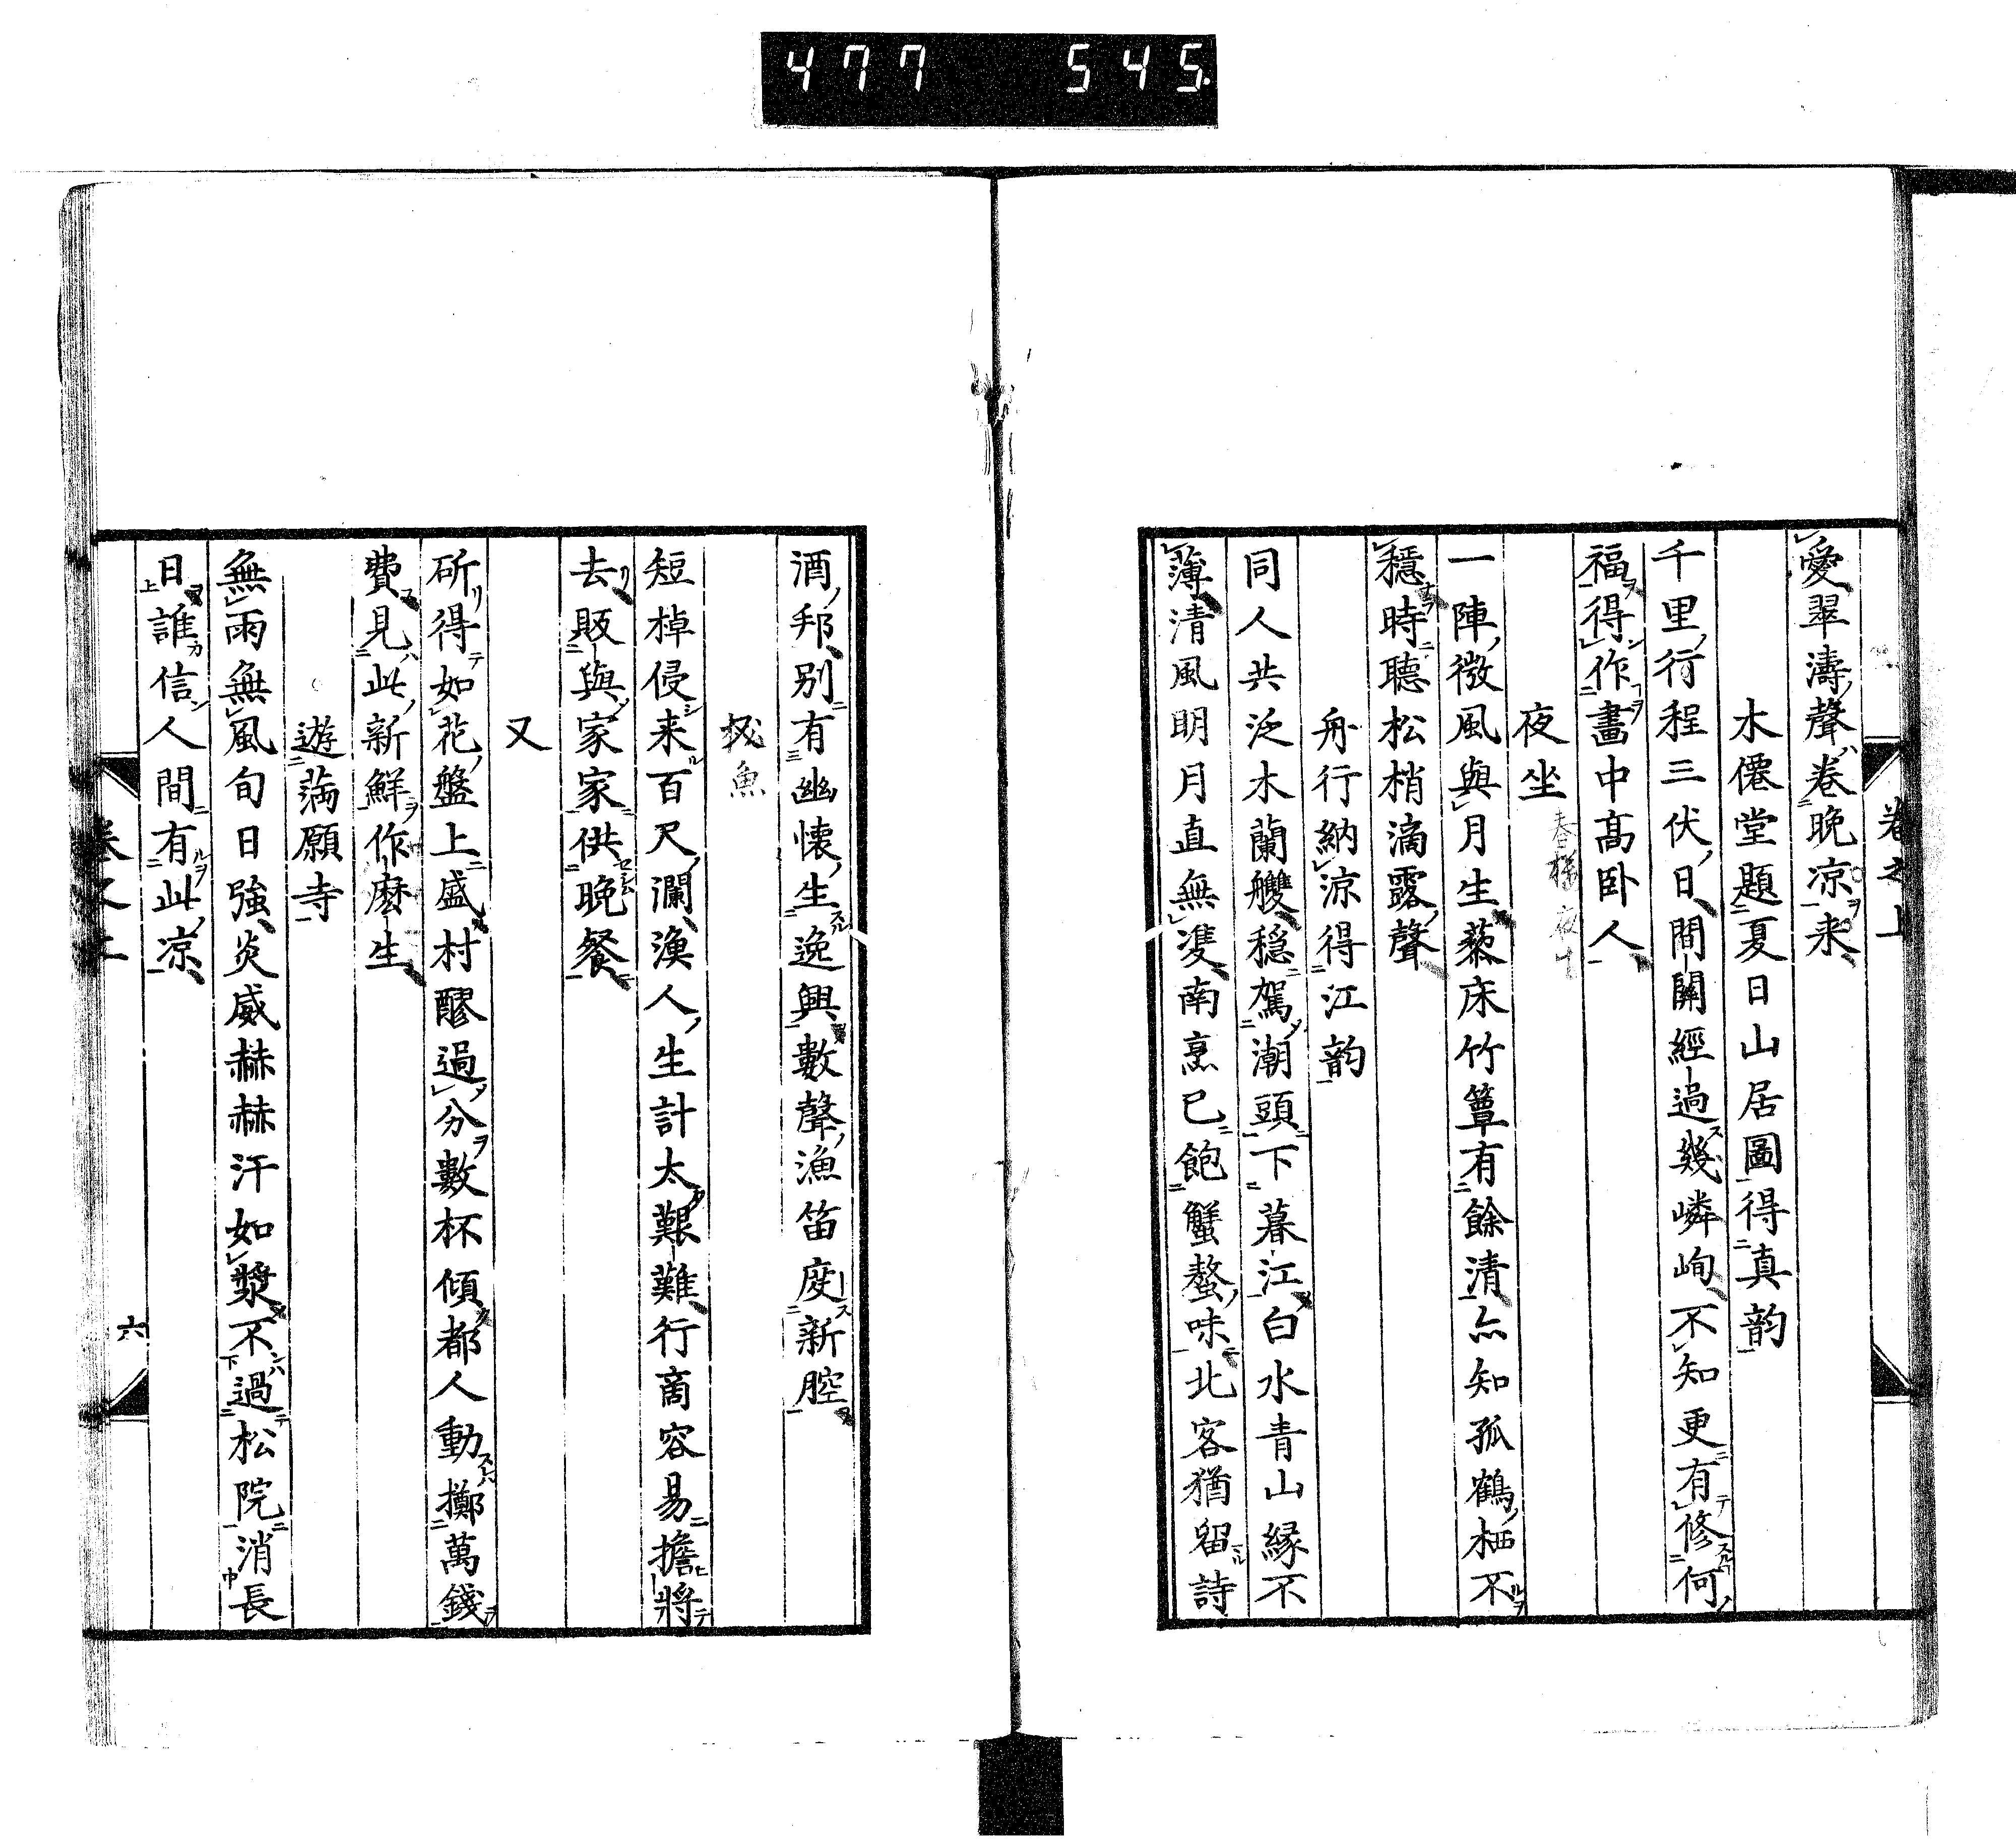 477 545
卷之上
愛翠濤聲卷晚凉来
木僊堂題夏日山居圖得真韵
千里行程三伏日間關經過幾嶙峋不知更有修何
福得作畵中髙卧人
夜坐
一陣微風與月生藜床竹簟有餘清亦知孤鶴栖不
穩時聽松梢滴露聲
舟行納涼得江韵
同人共泛木蘭艭穏駕潮頭下暮江白水青山縁不
薄清風明月直無㕠南烹已飽蟹螯味北客猶留詩
酒邦別有幽懐生逸興數聲漁笛度新腔
魚
短棹侵来百尺瀾漁人生計太艱難行商容易擔將
去販與家家供晚餐
又
斫得如花盤上盛村醪過分數杯傾都人動擲萬錢
費見此新鮮作麼生
遊満願寺
無雨無風旬日強炎威赫赫汗如漿不過松院消長
日誰信人間有此凉
卷之上
六